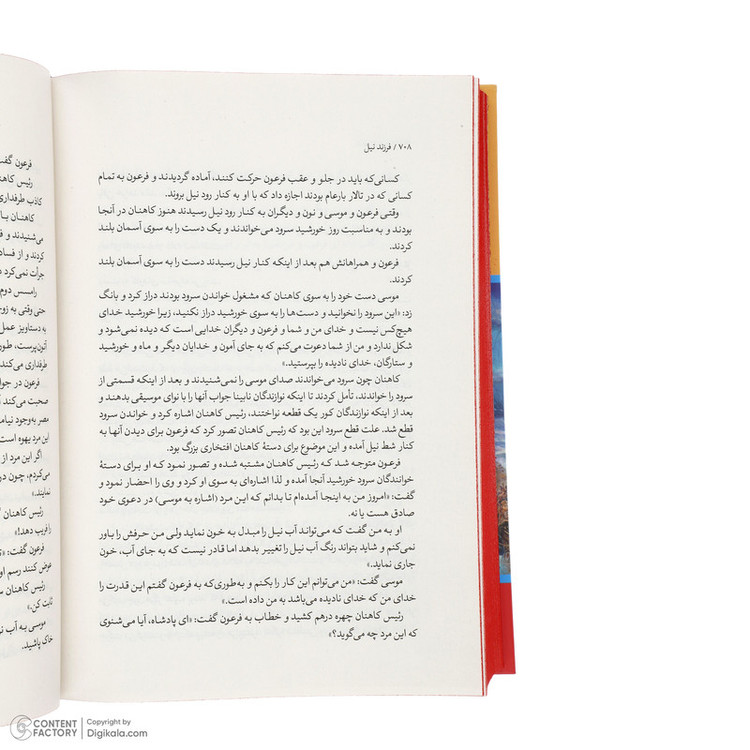 ۷۰۸ / فرزند نیل
کسانی‌که باید در جلو و عقب فرعون حرکت کنند، آماده گردیدند و فرعون به تمام
کسانی که در تالار بارعام بودند اجازه داد که با او به کنار رود نیل بروند.
وقتی فرعون و موسی و نون و دیگران به کنار رود نیل رسیدند هنوز کاهنان در آنجا
بودند و به مناسبت روز خورشید سرود می‌خواندند و یک دست را به سوی آسمان بلند
کردند.
فرعون و همراهانش هم بعد از اینکه کنار نیل رسیدند دست را به سوی آسمان بلند
کردند.
موسی دست خود را به سوی کاهنان که مشغول خواندن سرود بودند دراز کرد و بانگ
زد: «این سرود را نخوانید و دست‌ها را به سوی خورشید دراز نکنید، زیرا خورشید خدای
هیچ‌کس نیست و خدای من و شما و فرعون و دیگران خدایی است که دیده نمی‌شود و
شکل ندارد و من از شما دعوت می‌کنم که به جای آمون و خدایان دیگر و ماه و خورشید
و ستارگان، خدای نادیده را بپرستید.»
کاهنان چون سرود می‌خواندند صدای موسی را نمی‌شنیدند و بعد از اینکه قسمتی از
سرود را خواندند، تأمل کردند تا اینکه نوازندگان نابینا جواب آنها را با نوای موسیقی بدهند و
بعد از اینکه نوازندگان کور یک قطعه نواختند، رئیس کاهنان اشاره کرد و خواندن سرود
قطع شد. علت قطع سرود این بود که رئیس کاهنان تصور کرد که فرعون برای دیدن آنها به
کنار شط نیل آمده و این موضوع برای دستهٔ کاهنان افتخاری بزرگ بود.
فرعون متوجه شد که رئیس کاهنان مشتبه شده و تصور نمود که او برای دستهٔ
خوانندگان سرود خورشید آنجا آمده و لذا اشاره‌ای به سوی او کرد و وی را احضار نمود و
گفت: «امروز من به اینجا آمده‌ام تا بدانم که این مرد (اشاره به موسی) در دعوی خود
صادق هست یا نه.
او به من گفت که می‌تواند آب نیل را مبدل به خون نماید ولی من حرفش را باور
نمی‌کنم و شاید بتواند رنگ آب نیل را تغییر بدهد اما قادر نیست که به جای آب، خون
جاری نماید.»
موسی گفت: «من می‌توانم این کار را بکنم و به‌طوری‌که به فرعون گفتم این قدرت را
خدای من که خدای نادیده می‌باشد به من داده است.»
رئیس کاهنان چهره درهم کشید و خطاب به فرعون گفت: «ای پادشاه، آیا می‌شنوی
که این مرد چه می‌گوید؟»
فرعون گفت
رئیس کاهن
کاذب طرفداری
کاهنان با
می‌شنیدند و
کردند و از فساد
جرأت نمی‌کرد
رامسس دوم
حتی وقتی به زو
به دستاویز عمل
آتون‌پرست، طور
طرفداری می‌کند
فرعون در جوا
صحبت می‌کند
مصر به‌وجود نیام
این مرد یهوه است
اگر این مرد از
می‌کردم، چون در
نمایند.»
رئیس کاهنان
را فریب دهد!»
فرعون گفت:
عوض کنند رسم او
رئیس کاهنان
ثابت کن.»
موسی به آب
خاک پاشید.
CONTENT FACTORY
Copyright by
Digikala.com